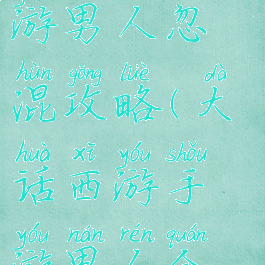 游男人忽
hùn gōng lüè dà
混攻略(大
huà xī yóu shǒu
话西游手
yóu nán rén quán
游男人全